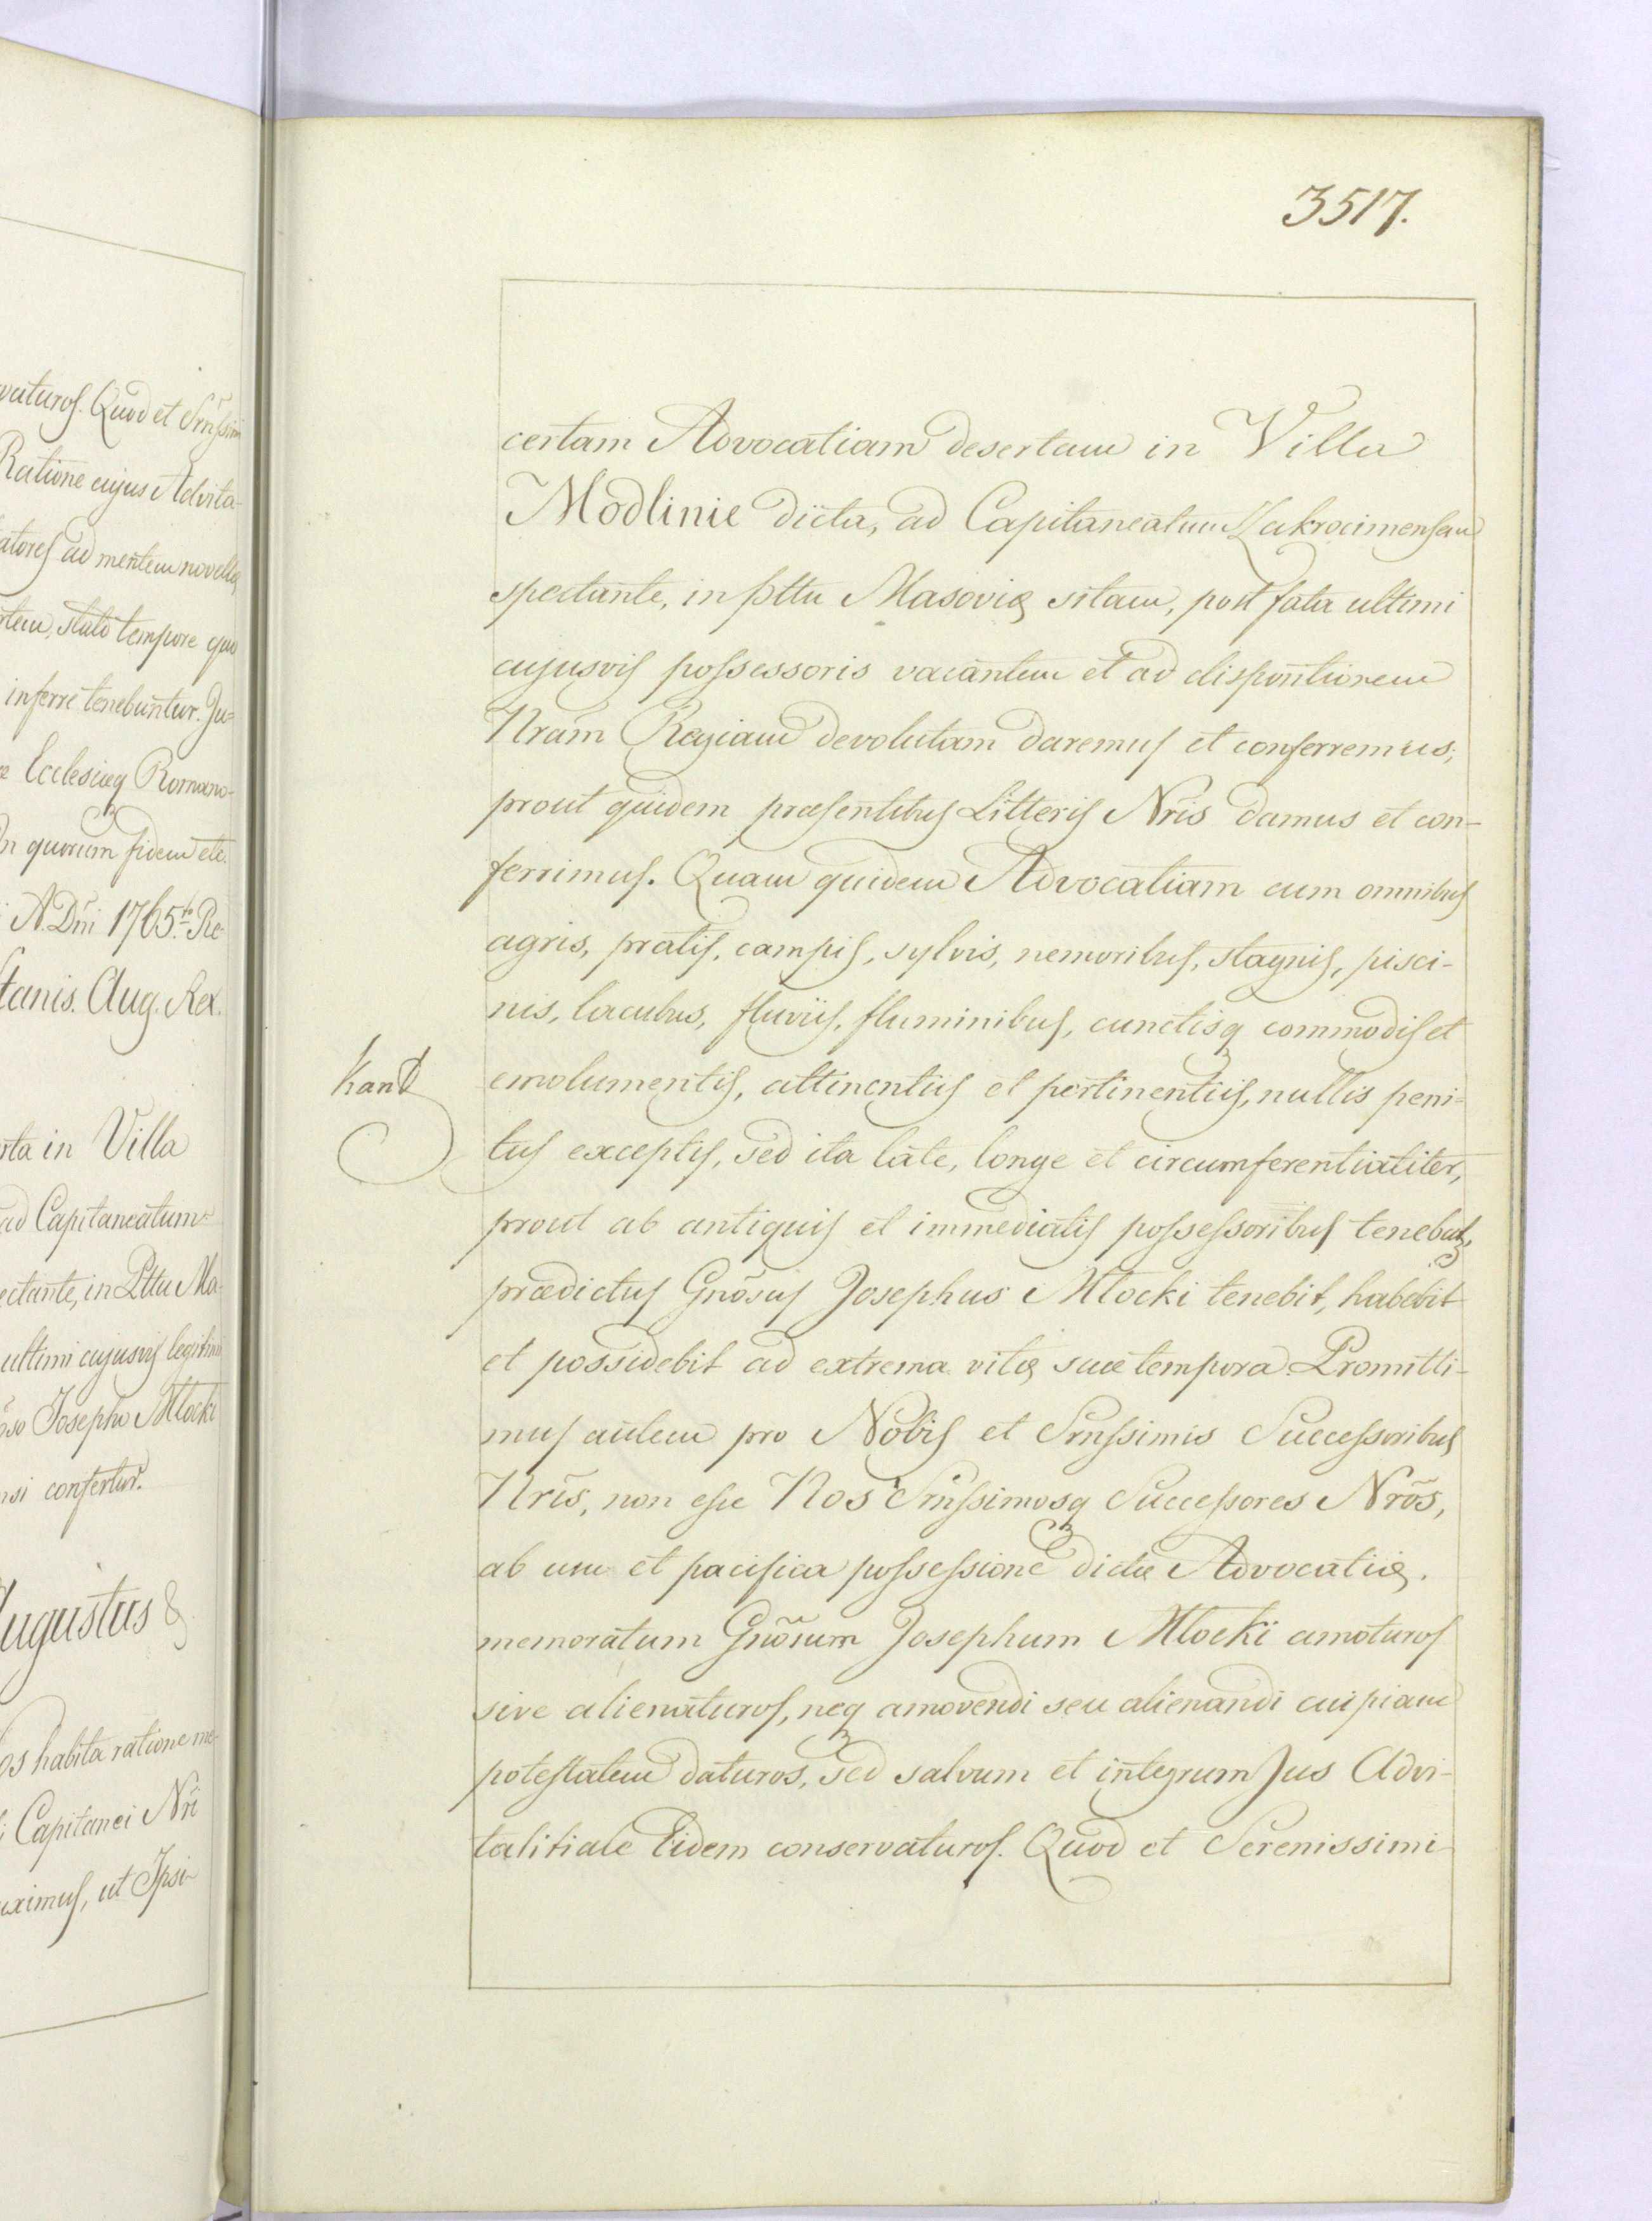 vaturos. Quod et Srnissimi
Ratione cujus Advita-
atores ad mentem novellæ
rtem, stato tempore quo
inferre tenebuntur. Ju=
Ecclesiæq Romano-
In quorum fidem etc.
A. Dni 1765to Re-
tanis. Aug. Rex.
rta in Villa
ad Capitaneatum
ectante, in Pttu Ma-
ultimi cujusvis legitimi
öso Josepho Młocki
nsi confertur.
Augustus &
os habita ratione me-
Capitanei Nri
uximus, ut Ipsi
3517.
certam Advocatiam desertam in Villa
Modlinie dicta, ad Capitaneatum Zakrocimensem
spectante, in Pttu Masoviæ sitam, post fata ultimi
cujusvis possessoris vacantem et ad dispositionem
Nram Regiam devolutam daremus et conferremus,
prout quidem præsentibus Litteris Nris damus et con-
ferrimus. Quam quidem Advocatiam cum omnibus
agris, pratis, campis, sylvis, nemoribus, stagnis, pisci-
nis, lacubus, fluviis, fluminibus, cunctisq commodis et
Kant
emolumentis, attinentiis et pertinentiis, nullis peni-
tus exceptis, sed ita late, longe et circumferentialiter,
prout ab antiquis et immediatis possessoribus tenebatr,
prædictus Gnõsus Josephus Młocki tenebit, habebit
et possidebit ad extrema vitæ suæ tempora. Promitti-
mus autem pro Nobis et Srnissimis Successoribus
Nris, non esse Nos Srnissimosq Successores Nrõs,
ab usu et pacifica possessione dictæ Advocatiæ.
memoratum Gnõsum Josephum Młocki amoturos
sive alienaturos, neq amovendi seu alienandi cuipiam
potestatem daturos, sed salvum et integrum Jus Advi-
talitiale Eidem conservaturos. Quod et Serenissimi